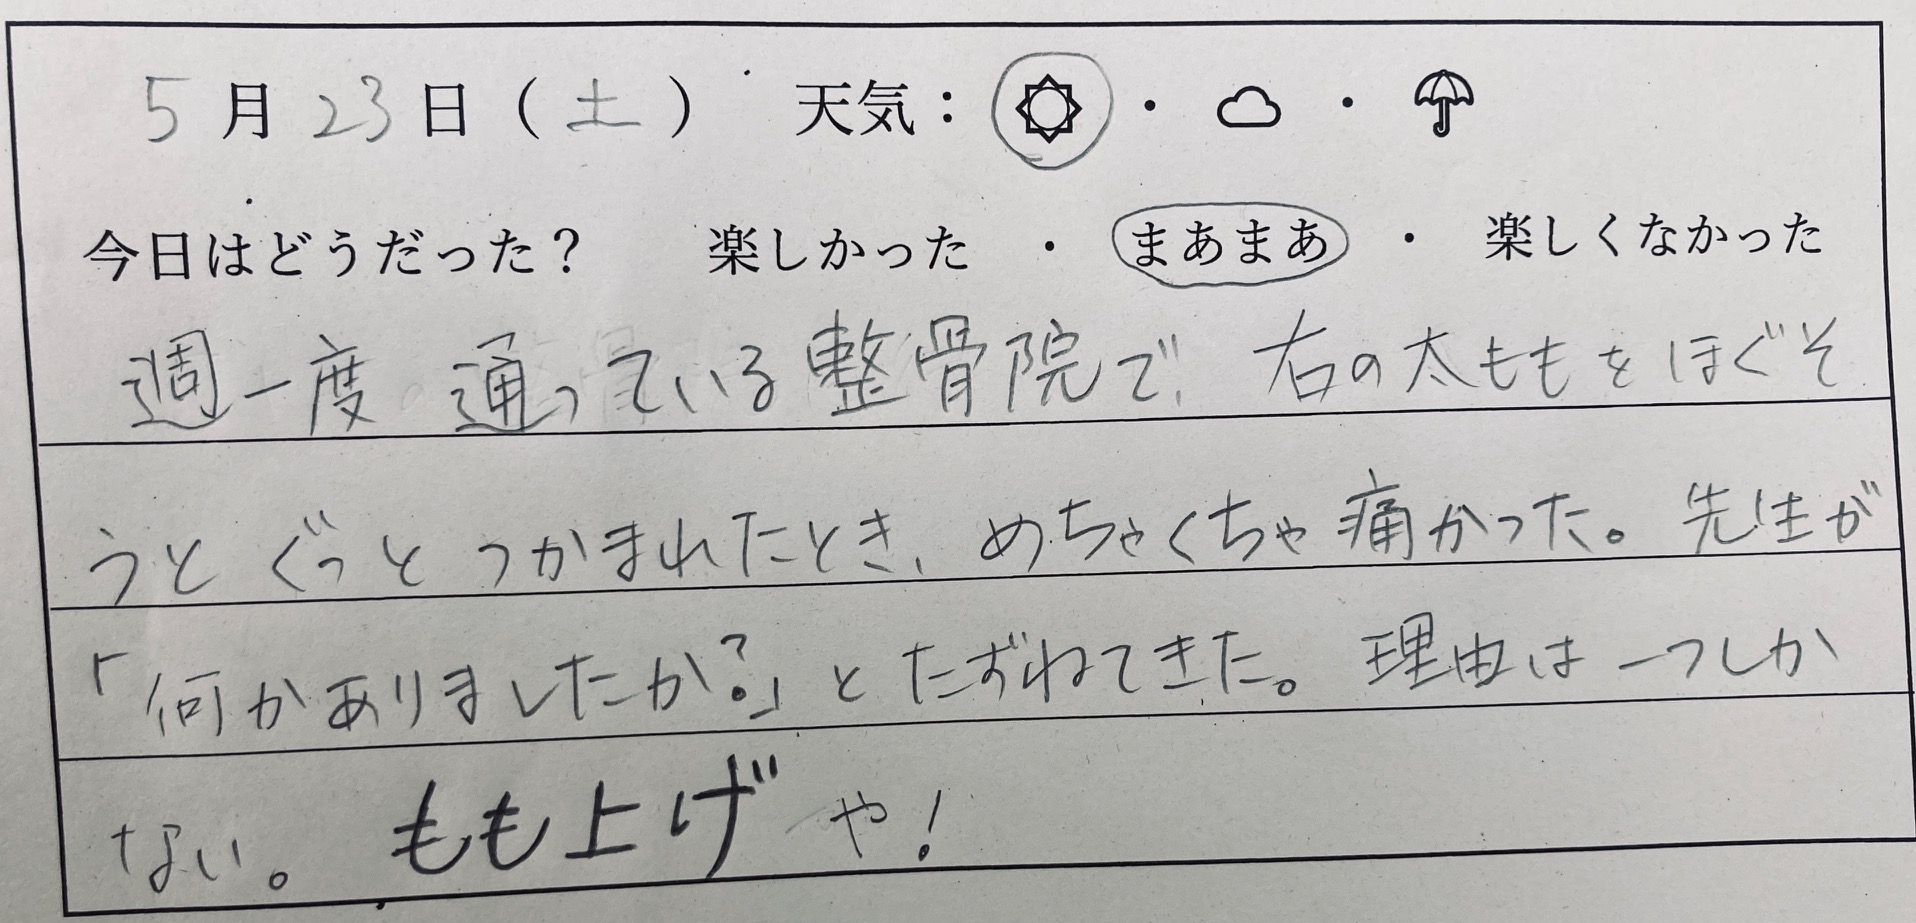 5月23日(土) 天気:☀・☁・☂
今日はどうだった? 楽しかった ・ まあまあ ・ 楽しくなかった
週一度 通っている整骨院で、右の太ももをほぐそ
うと ぐっと つかまれたとき、めちゃくちゃ痛かった。先生が
「何かありましたか?」とたずねてきた。理由は一つしか
ない。 もも上げ や!